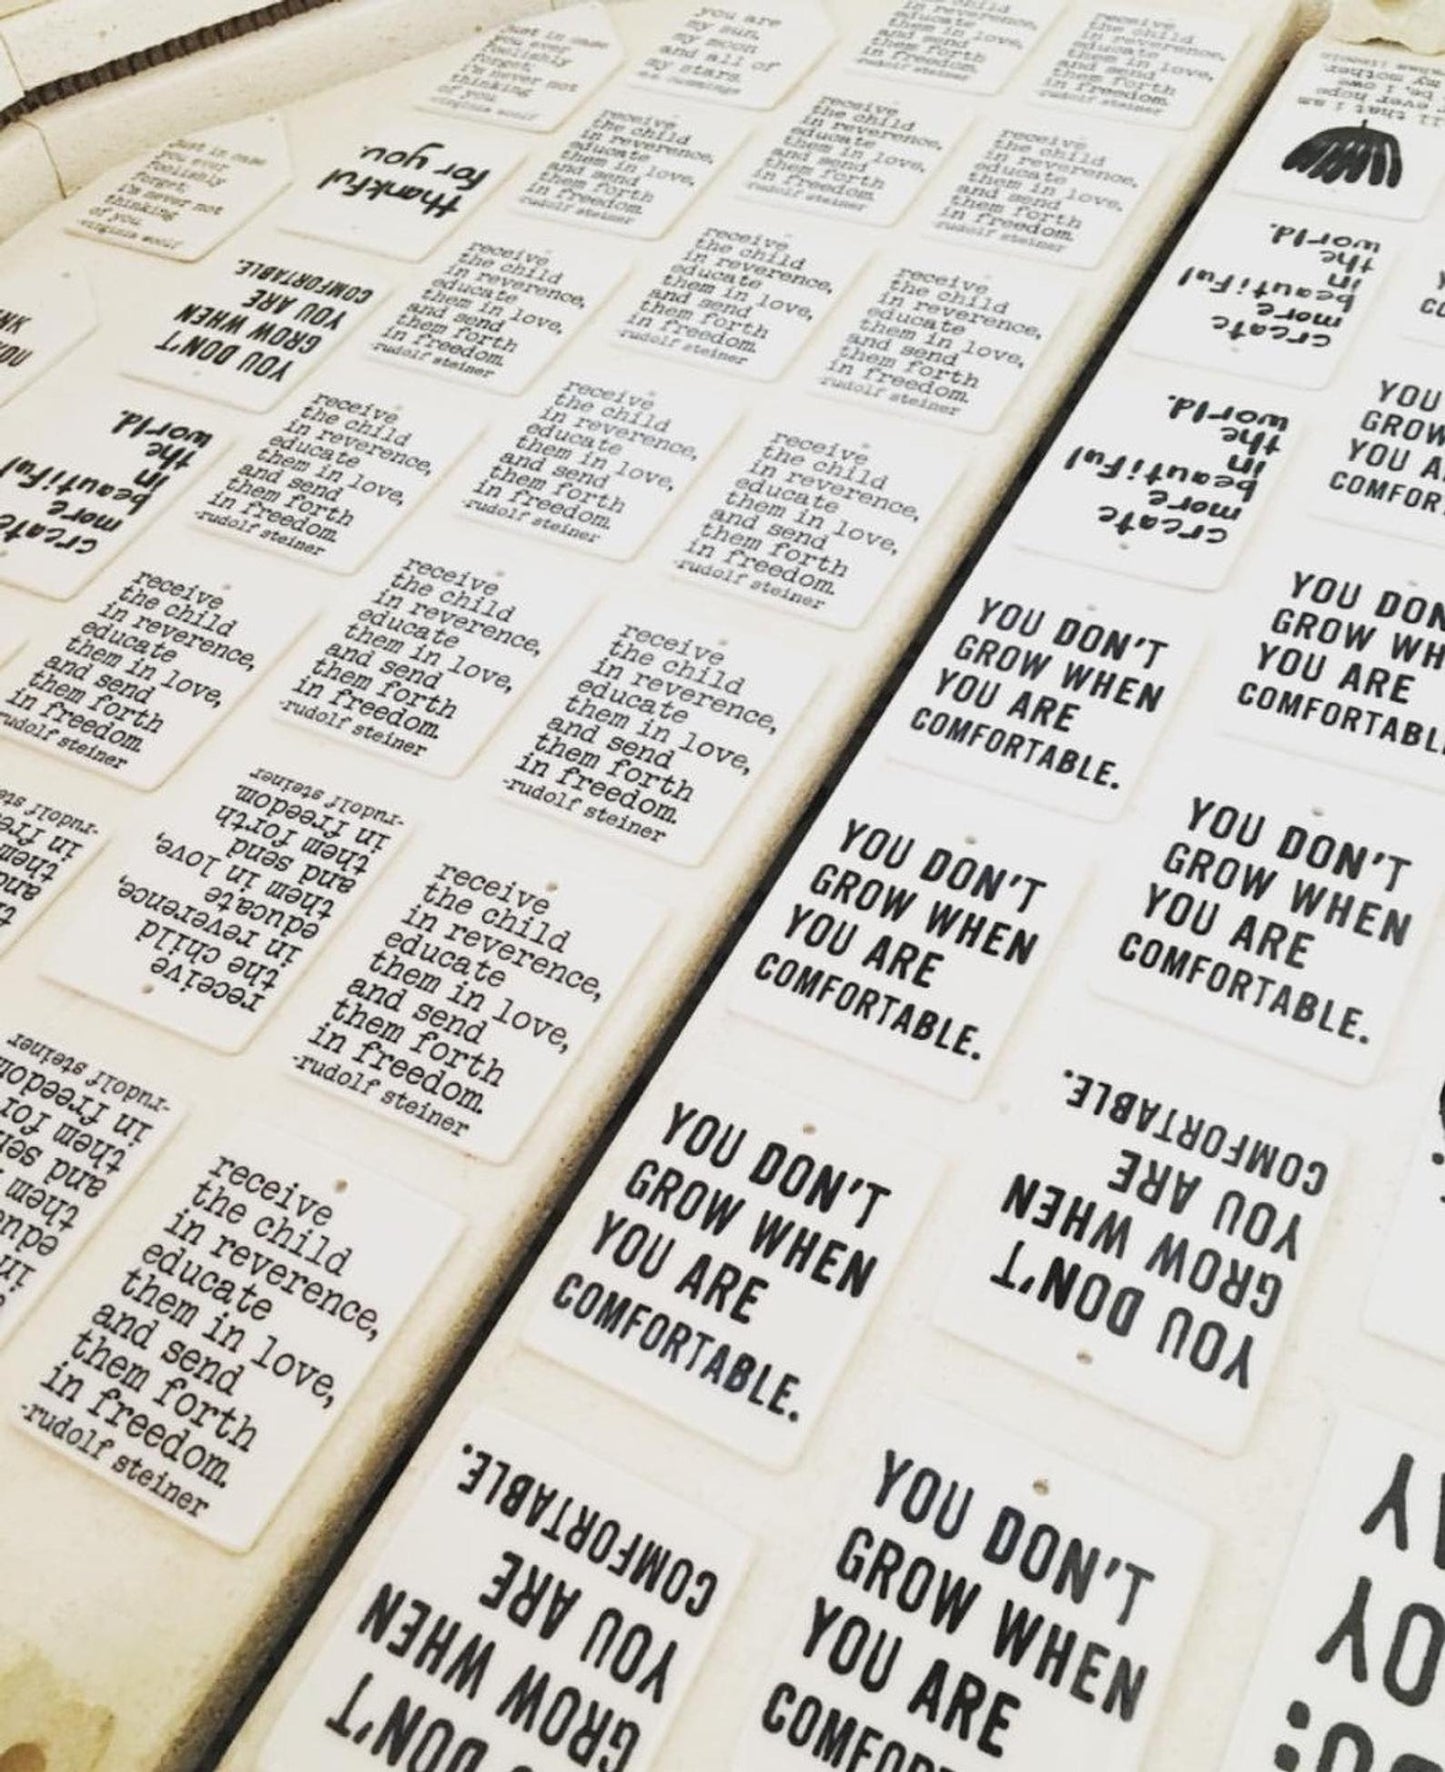 just in case
you ever
foolishly
forget,
i'm never not
thinking
of you.
-virginia woolf
you are
my sun,
my moon
and all of
my stars.
in reverence,
educate
them in love,
and send
them forth
in freedom.
-rudolf steiner
receive
the child
in reverence,
educate
them in love,
and send
them forth
in freedom.
-rudolf steiner
just in case
you ever
foolishly
forget,
i'm never not
thinking
of you.
-virginia woolf
thankful
for you.
receive
the child
in reverence,
educate
them in love,
and send
them forth
in freedom.
-rudolf steiner
receive
the child
in reverence,
educate
them in love,
and send
them forth
in freedom.
-rudolf steiner
receive
the child
in reverence,
educate
them in love,
and send
them forth
in freedom.
-rudolf steiner
YOU DON'T
GROW WHEN
YOU ARE
COMFORTABLE.
receive
the child
in reverence,
educate
them in love,
and send
them forth
in freedom.
-rudolf steiner
receive
the child
in reverence,
educate
them in love,
and send
them forth
in freedom.
-rudolf steiner
receive
the child
in reverence,
educate
them in love,
and send
them forth
in freedom.
-rudolf steiner
create
more
beautiful
in
the
world.
receive
the child
in reverence,
educate
them in love,
and send
them forth
in freedom.
-rudolf steiner
receive
the child
in reverence,
educate
them in love,
and send
them forth
in freedom.
-rudolf steiner
receive
the child
in reverence,
educate
them in love,
and send
them forth
in freedom.
-rudolf steiner
receive
the child
in reverence,
educate
them in love,
and send
them forth
in freedom.
-rudolf steiner
receive
the child
in reverence,
educate
them in love,
and send
them forth
in freedom.
-rudolf steiner
receive
the child
in reverence,
educate
them in love,
and send
them forth
in freedom.
-rudolf steiner
receive
the child
in reverence,
educate
them in love,
and send
them forth
in freedom.
-rudolf steiner
receive
the child
in reverence,
educate
them in love,
and send
them forth
in freedom.
-rudolf steiner
them
and sen
them for
in freedom
-rudolf steiner
receive
the child
in reverence,
educate
them in love,
and send
them forth
in freedom.
-rudolf steiner
all that i am
or ever hope
to be, i owe
to my mother
create
more
beautiful
in
the
world.
create
more
beautiful
in
the
world.
YOU
GROW
YOU A
COMFOR
YOU DON'T
GROW WHEN
YOU ARE
COMFORTABLE.
YOU DON
GROW WH
YOU ARE
COMFORTABL
YOU DON'T
GROW WHEN
YOU ARE
COMFORTABLE.
YOU DON'T
GROW WHEN
YOU ARE
COMFORTABLE.
YOU DON'T
GROW WHEN
YOU ARE
COMFORTABLE.
YOU DON'T
GROW WHEN
YOU ARE
COMFORTABLE.
DON'T
GROW WHEN
YOU ARE
COMFORTABLE.
YOU DON'T
GROW WHEN
YOU ARE
COMFOR